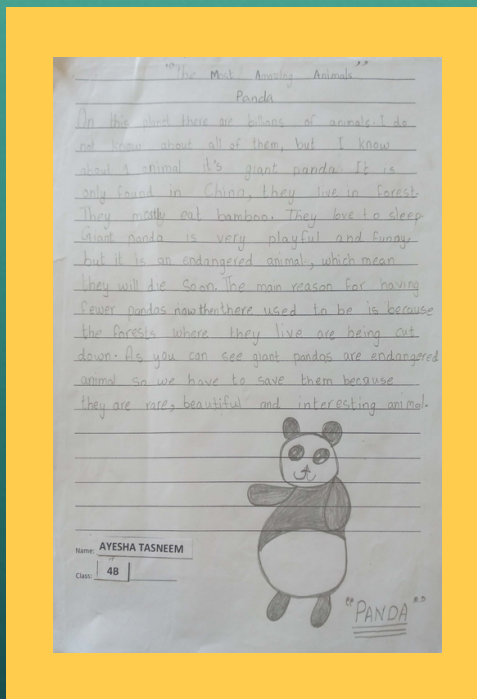 "The Most Amazing Animals"
Panda
On this planet there are billions of animals. I do
not know about all of them, but I know
about 1 animal it's giant panda. It is
only found in China, they live in forest.
They mostly eat bamboo. They love to sleep.
Giant panda is very playful and funny,
but it is an endangered animal, which mean
they will die soon. The main reason for having
fewer pandas now then there used to be is because
the forests where they live are being cut
down. As you can see giant pandas are endangered
animal so we have to save them because
they are rare, beautiful and interesting animal.
Name: AYESHA TASNEEM
Class: 4B
"PANDA"